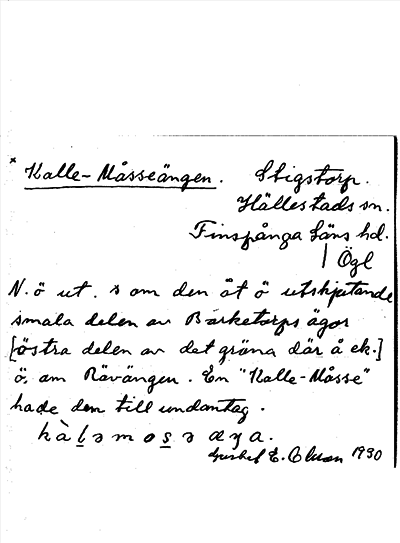 * Kalle-Måsseängen. Stigstorp.
Hällestads sn.
Finspånga läns hd.
Ögl
N. ö ut. som den åt ö utskjutande
smala delen av Bärketorps ägor
[östra delen av det gröna där å ek.]
ö. om Rävängen. En "Kalle-Måsse"
hade den till undantag.
kàləmosə æŋa.
E. Olson 1930